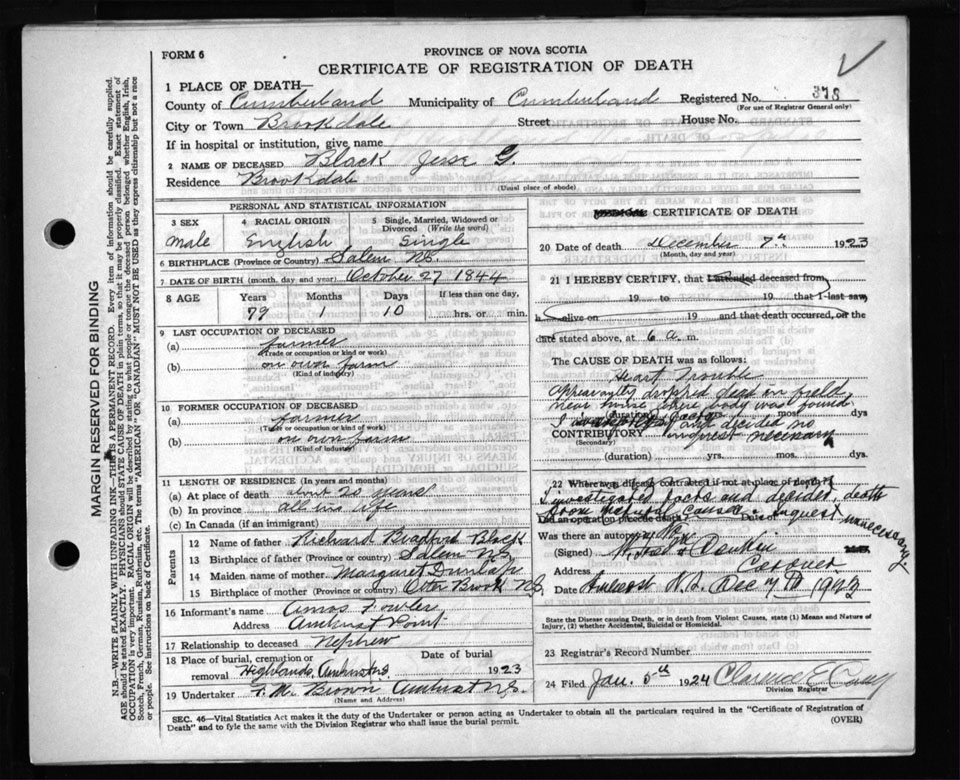 PROVINCE OF NOVA SCOTIA
FORM 6
CERTIFICATE OF REGISTRATION OF DEATH
1 PLACE OF DEATH—
County of Cumberland Municipality of Cumberland Registered No. 378
(For use of Registrar General only)
City or Town Brookdale Street House No.
If in hospital or institution, give name
2 NAME OF DECEASED Black Jesse G.
Residence Brookdale
(Usual place of abode)
PERSONAL AND STATISTICAL INFORMATION
3 SEX 4 RACIAL ORIGIN 5 Single, Married, Widowed or Divorced (Write the word)
Male English Single
6 BIRTHPLACE (Province or Country) Salem N.S.
7 DATE OF BIRTH (month, day and year) October 27 1844
8 AGE Years Months Days If less than one day,
79 10 hrs. or min.
9 LAST OCCUPATION OF DECEASED
(a) farmer
(Trade or occupation or kind or work)
(b) on own farm
(Kind of industry)
10 FORMER OCCUPATION OF DECEASED
(a) farmer
(Trade or occupation or kind of work)
(b) on own farm
(Kind of industry)
11 LENGTH OF RESIDENCE (In years and months)
(a) At place of death about 20 years
(b) In province all his life
(c) In Canada (if an immigrant)
Parents
12 Name of father Richard Bradford Black
13 Birthplace of father Salem N.S.
14 Maiden name of mother Margaret Dunlap
15 Birthplace of mother (Province or country) Otter Brook N.S.
16 Informant's name Amos Fowler
Address Amherst Point
17 Relationship to deceased Nephew
18 Place of burial, cremation or removal Date of burial
Highland, Amherst N.S. 1923
19 Undertaker F. M. Brown Amherst N.S.
(Name and Address)
CERTIFICATE OF DEATH
20 Date of death December 7th 1923
(Month, day and year)
21 I HEREBY CERTIFY, that I attended deceased from
19 to 19 that I last saw
h alive on 19 and that death occurred, on the
date stated above, at 6 a. m.
The CAUSE OF DEATH was as follows:
Heart Trouble
Appearantley dropped dead in field
near house where body was found
(duration) yrs. mos. dys
I and decided no
CONTRIBUTORY inquest necessary
(Secondary)
(duration) yrs. mos. dys
22 Where was disease contracted if not at place of death?
I investigated facts and decided death
from natural causes. inquest unnecessary.
Did an operation precede death? Date of
Was there an autopsy? No
(Signed)
Address Coroner
Date Amherst N.S. Dec 7th 1923
State the Disease causing Death, or in death from Violent Causes, state (1) Means and Nature of Injury, (2) whether Accidental, Suicidal or Homicidal.
23 Registrar's Record Number
24 Filed Jan. 5th 1924 Clarence E.
Division Registrar
SEC. 46—Vital Statistics Act makes it the duty of the Undertaker or person acting as Undertaker to obtain all the particulars required in the "Certificate of Registration of
Death" and to fyle the same with the Division Registrar who shall issue the burial permit. (OVER)
MARGIN RESERVED FOR BINDING
N.B.—WRITE PLAINLY WITH UNFADING INK—THIS IS A PERMANENT RECORD. Every item of information should be carefully supplied.
AGE should be stated EXACTLY. PHYSICIANS should STATE CAUSE OF DEATH in plain terms, so that it may be properly classified. Exact statement of
OCCUPATION is very important. RACIAL ORIGIN will be described by stating to what people or tongue the deceased person belonged whether English, Irish,
Scotch, French, German, Russian, Ruthenian, etc. The terms "AMERICAN" OR "CANADIAN" MUST NOT BE USED as they express citizenship but not a race
or people. See instructions on back of Certificate.